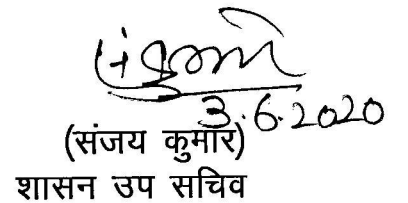 3.6.2020
(संजय कुमार)
शासन उप सचिव